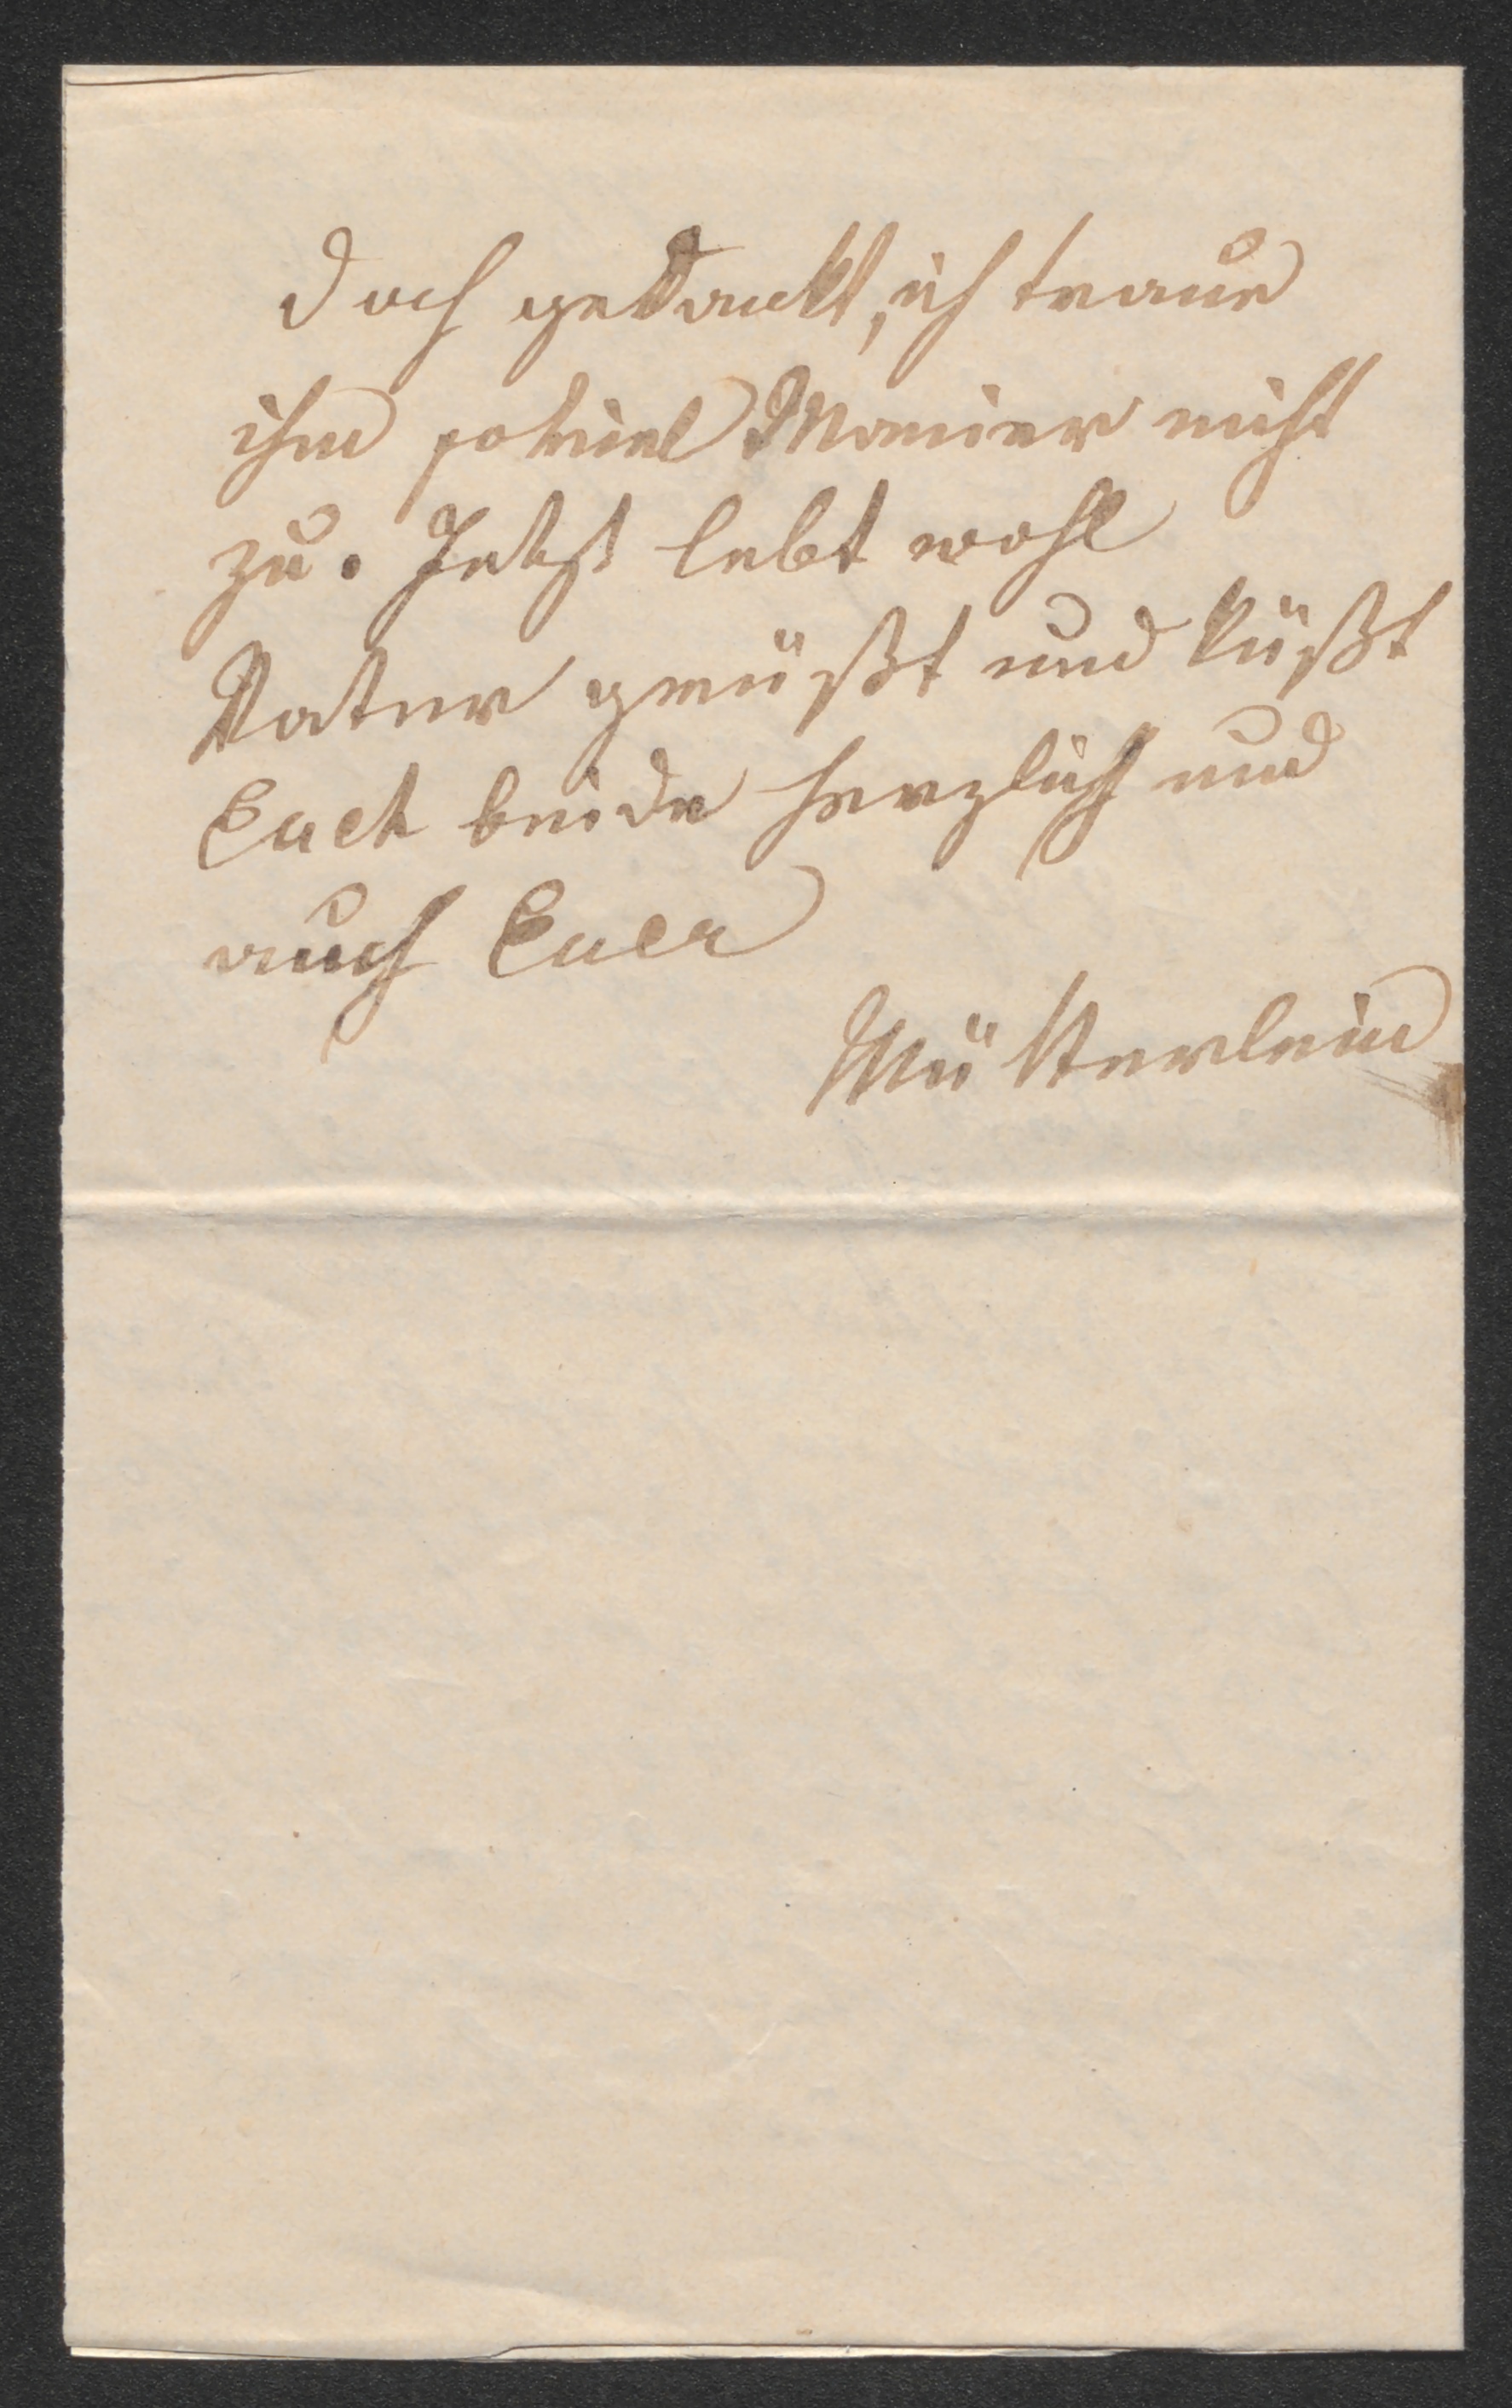 doch gedankt, ich traue
ihm soviel Manier nicht
zu. Jetzt lebt wohl
Vater grüßt und küßt
Euch beide herzlich und
auch Euer
Mütterlein